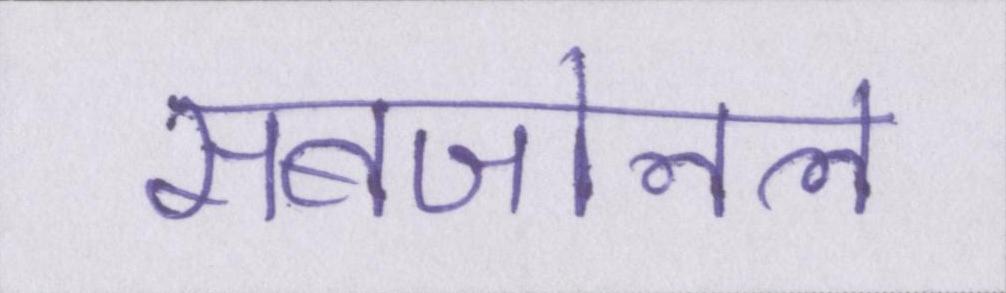 सबजोनल